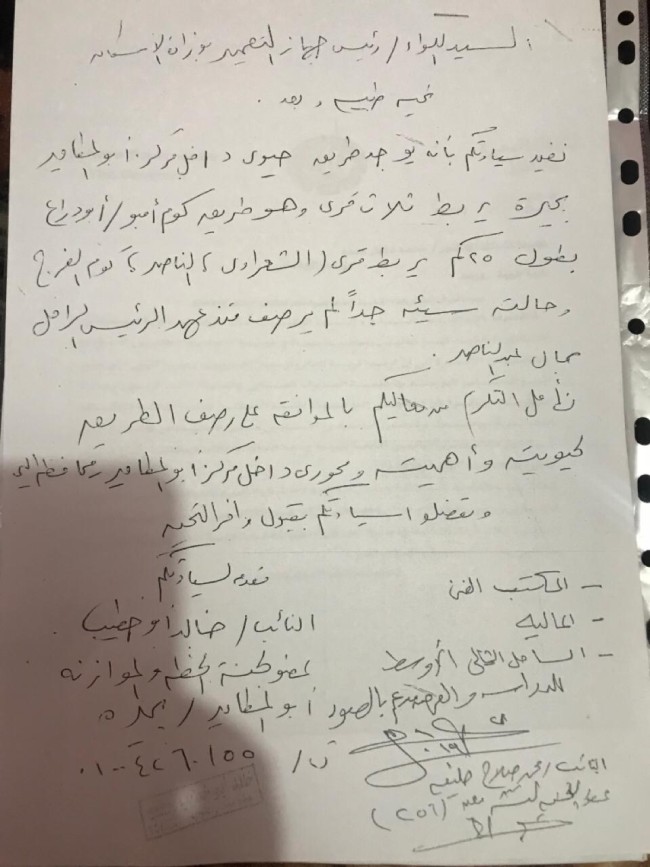 السيد اللواء / رئيس جهاز التعمير بوزارة الإسكان
تحيه طيبه وبعد .
نفيد سيادتكم بأنه يوجد طريق حيوى داخل مركز أبو المطامير
بحيرة يربط ثلاث قرى وهو طريق كوم أمبو / أبودراع
بطول ٢٥ كم يربط قرى ( الشعراوى ، الناصر ، كوم الفرج
وحالته سيئه جداً لم يرصف منذ عهد الرئيس الراحل
جمال عبد الناصر .
نأمل التكرم من معاليكم بالموافقه على رصف الطريق
لحيويته وأهميته ومحورى داخل مركز أبو المطامير
وتفضلوا سيادتكم بقبول وافر التحيه
مقدمه لسيادتكم
- المكتب الفنى
النائب / خالد أبو خطيب
- الماليه
عضو لجنة الخطه والموازنه
- الساحل الشمالى الأوسط
للدراسه والعرض
أبو المطامير / بحيرة
ت / ٠١٠٠٤٢٦٠١٥٥
النائب / محمد صلاح خليفه
(٢٥٦)